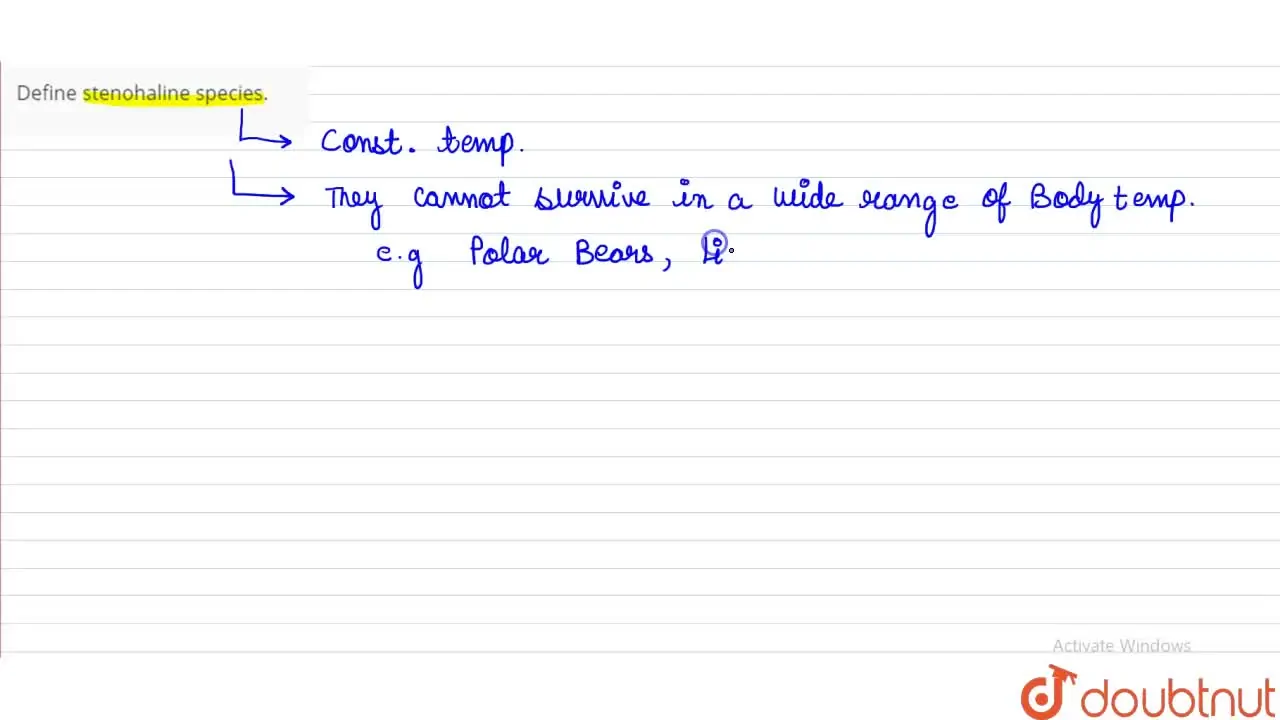 Define stenohaline species.
Const. temp.
They cannot survive in a wide range of Body temp.
e.g Polar Bears, Li
Activate Windows
doubtnut